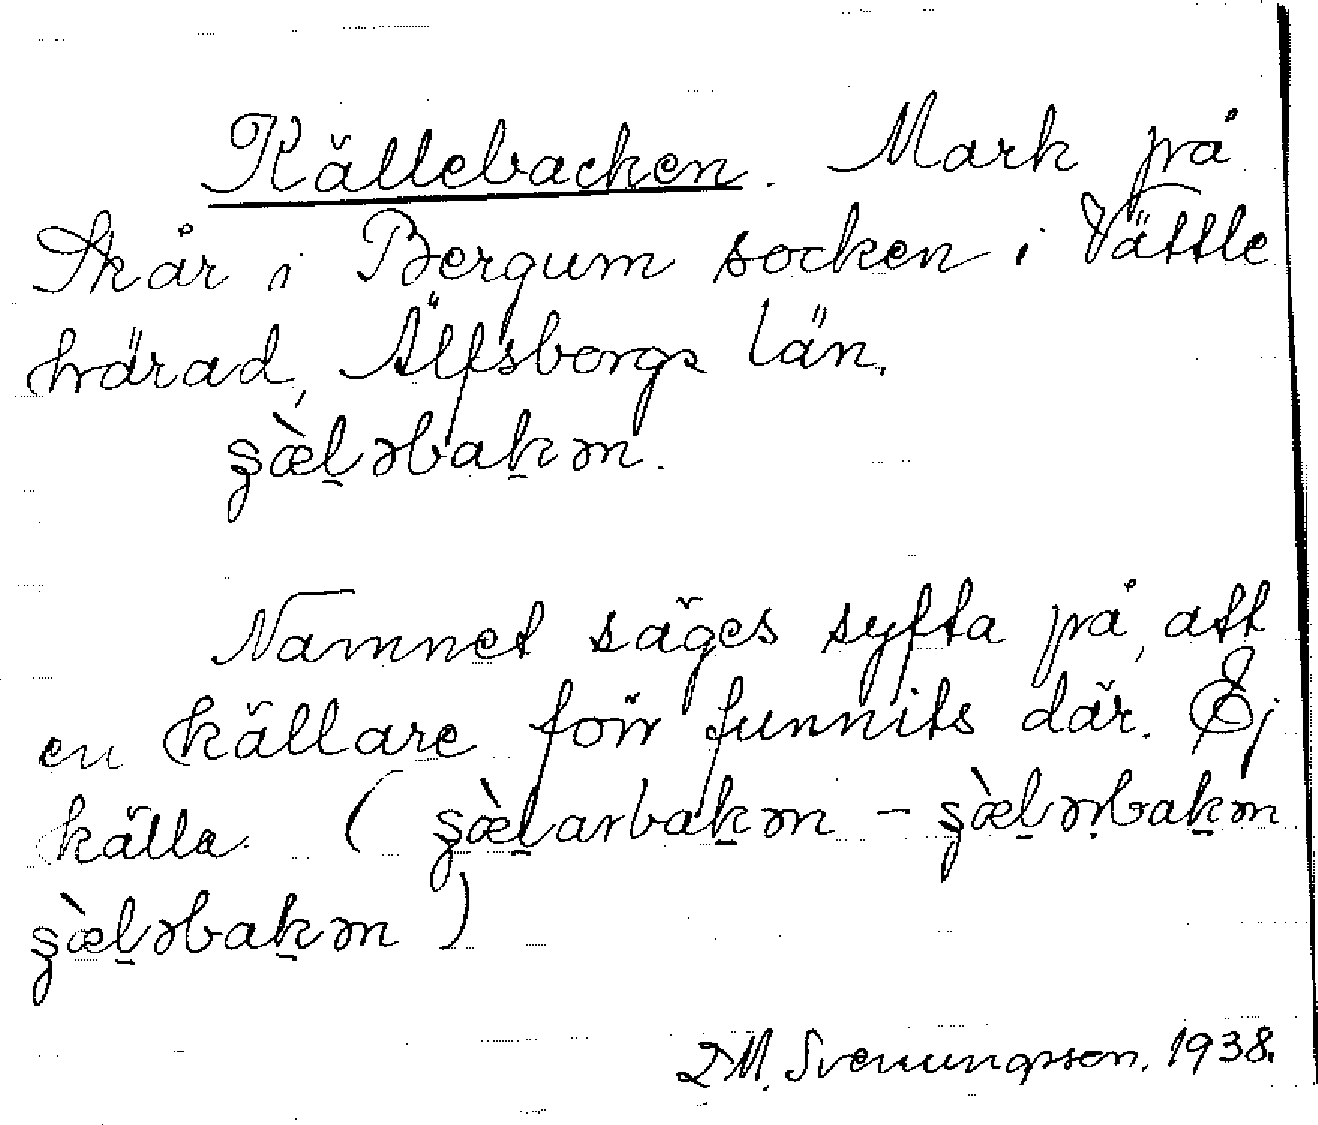 Källebacken. Mark på
Skår i Bergum socken i Vättle
härad, Älfsborgs län.
ʂæ̀l̠əbak̠ən.
Namnet säges syfta på, att
en källare förr funnits där. Ej
källa. (ʂæ̀l̠arbak̠ən – ʂæ̀l̠ərbak̠ən
ʂæ̀l̠əbak̠ən)
M. Svenungsson. 1938.